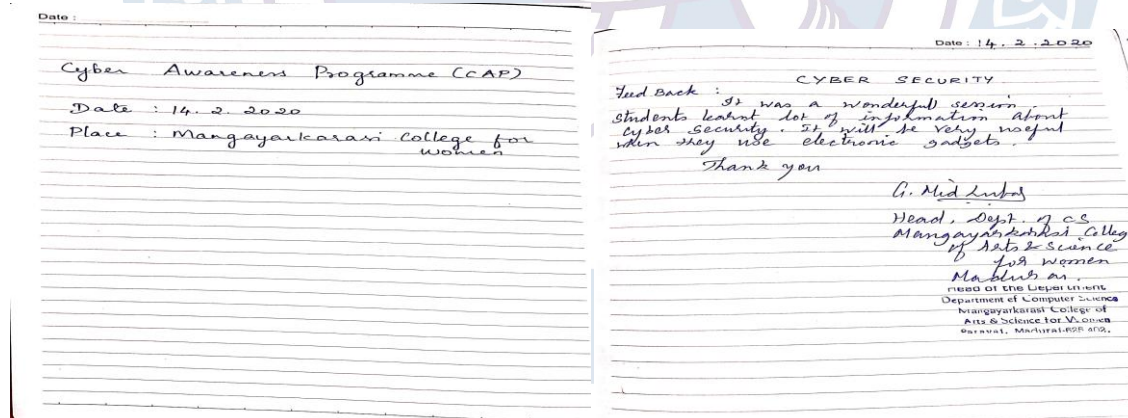 Date :
Cyber Awareness Programme (CAP)
Date : 14. 2. 2020
Place : Mangayarkarasi College for
Women
Date : 14. 2. 2020
CYBER SECURITY
Feed Back :
It was a wonderful session.
Students learnt lot of information about
cyber security. It will be very useful
when they use electronic gadgets.
Thank you
G.
Head, Dept. of CS
Mangayarkarasi College
of Arts & Science
for women
Head of the Department
Department of Computer Science
Mangayarkarasi College of
Arts & Science for Women
Paravai, Madurai-625 402.